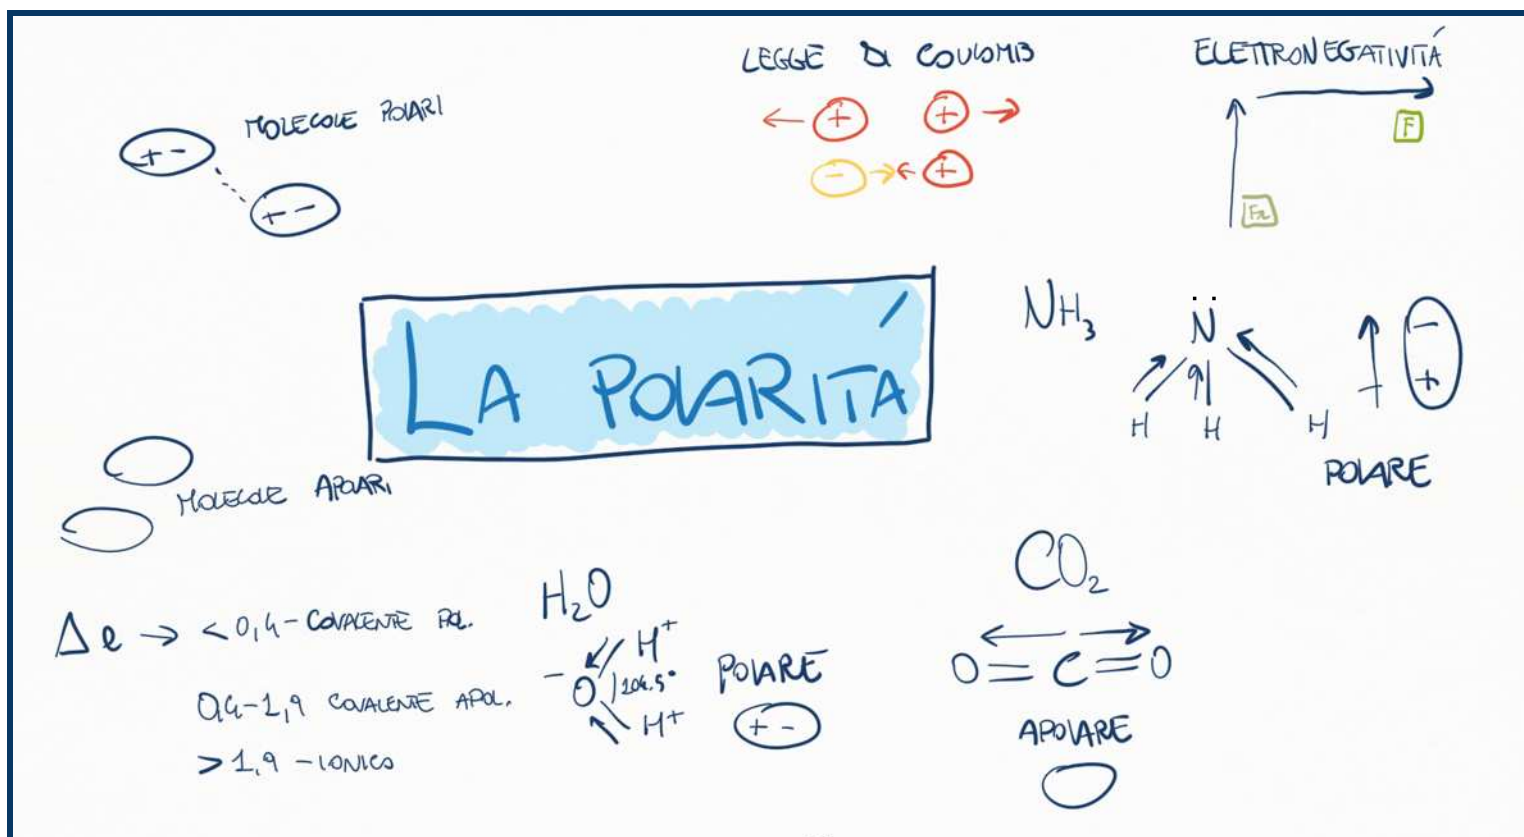 MOLECOLE POLARI
+ -
+ -
LEGGE DI COULOMB
+ +
- +
ELETTRONEGATIVITÁ
F
Fr
LA POLARITÁ
NH3
N
H H H
-
+
POLARE
MOLECOLE APOLARI
Δe → < 0,4 - COVALENTE POL.
0,4-1,9 COVALENTE APOL.
> 1,9 - IONICO
H2O
H+
- O 104.5°
H+
POLARE
+ -
CO2
O = C = O
APOLARE